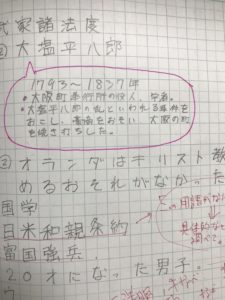 武家諸法度
②大塩平八郎
1793〜1837年
・大阪町奉行所の役人、学者。
・大塩平八郎の乱といわれる事件を
おこし、書商をおそい、大阪の町
を焼き打ちした。
②オランダはキリスト教
めるおそれがなかった
国学
日米和親条約
富国強兵
20才になった男子
この用語がない
具体的な
調べて。